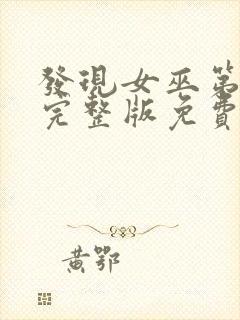 發現女巫第
完整版免費
黃鄂